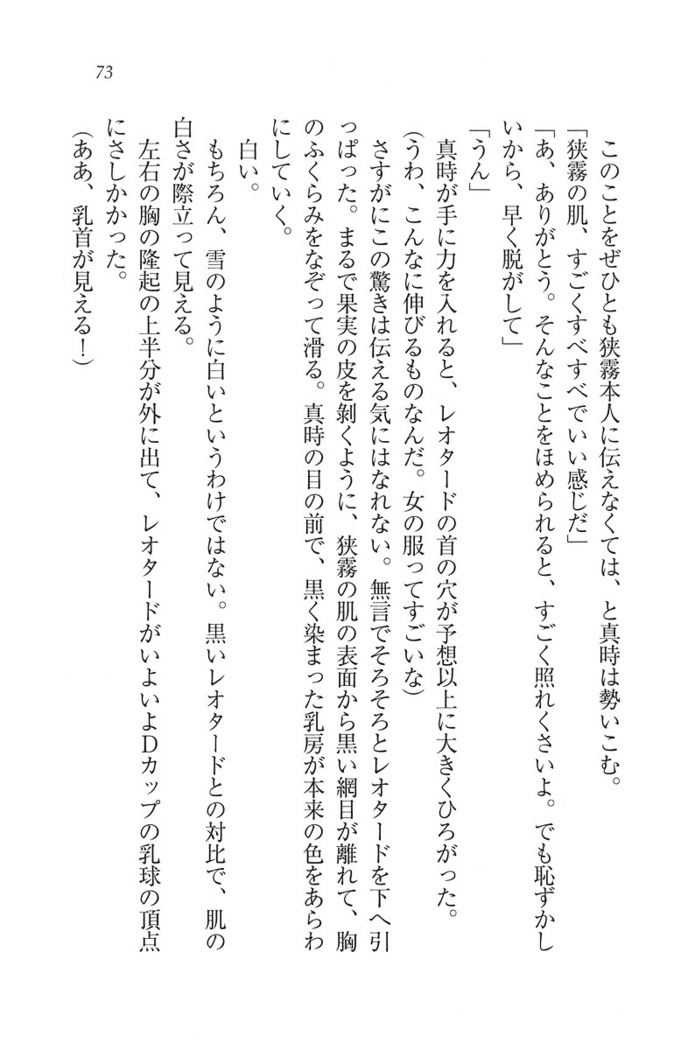 73
このことをぜひとも狭霧本人に伝えなくては、と真時は勢いこむ。
「狭霧の肌、すごくすべすべでいい感じだ」
「あ、ありがとう。そんなことをほめられると、すごく照れくさいよ。でも恥ずかし
いから、早く脱がして」
「うん」
真時が手に力を入れると、レオタードの首の穴が予想以上に大きくひろがった。
(うわ、こんなに伸びるものなんだ。女の服ってすごいな)
さすがにこの驚きは伝える気にはなれない。無言でそろそろとレオタードを下へ引
っぱった。まるで果実の皮を剝くように、狭霧の肌の表面から黒い網目が離れて、胸
のふくらみをなぞって滑る。真時の目の前で、黒く染まった乳房が本来の色をあらわ
にしていく。
白い。
もちろん、雪のように白いというわけではない。黒いレオタードとの対比で、肌の
白さが際立って見える。
左右の胸の隆起の上半分が外に出て、レオタードがいよいよDカップの乳球の頂点
にさしかかった。
(ああ、乳首が見える！)